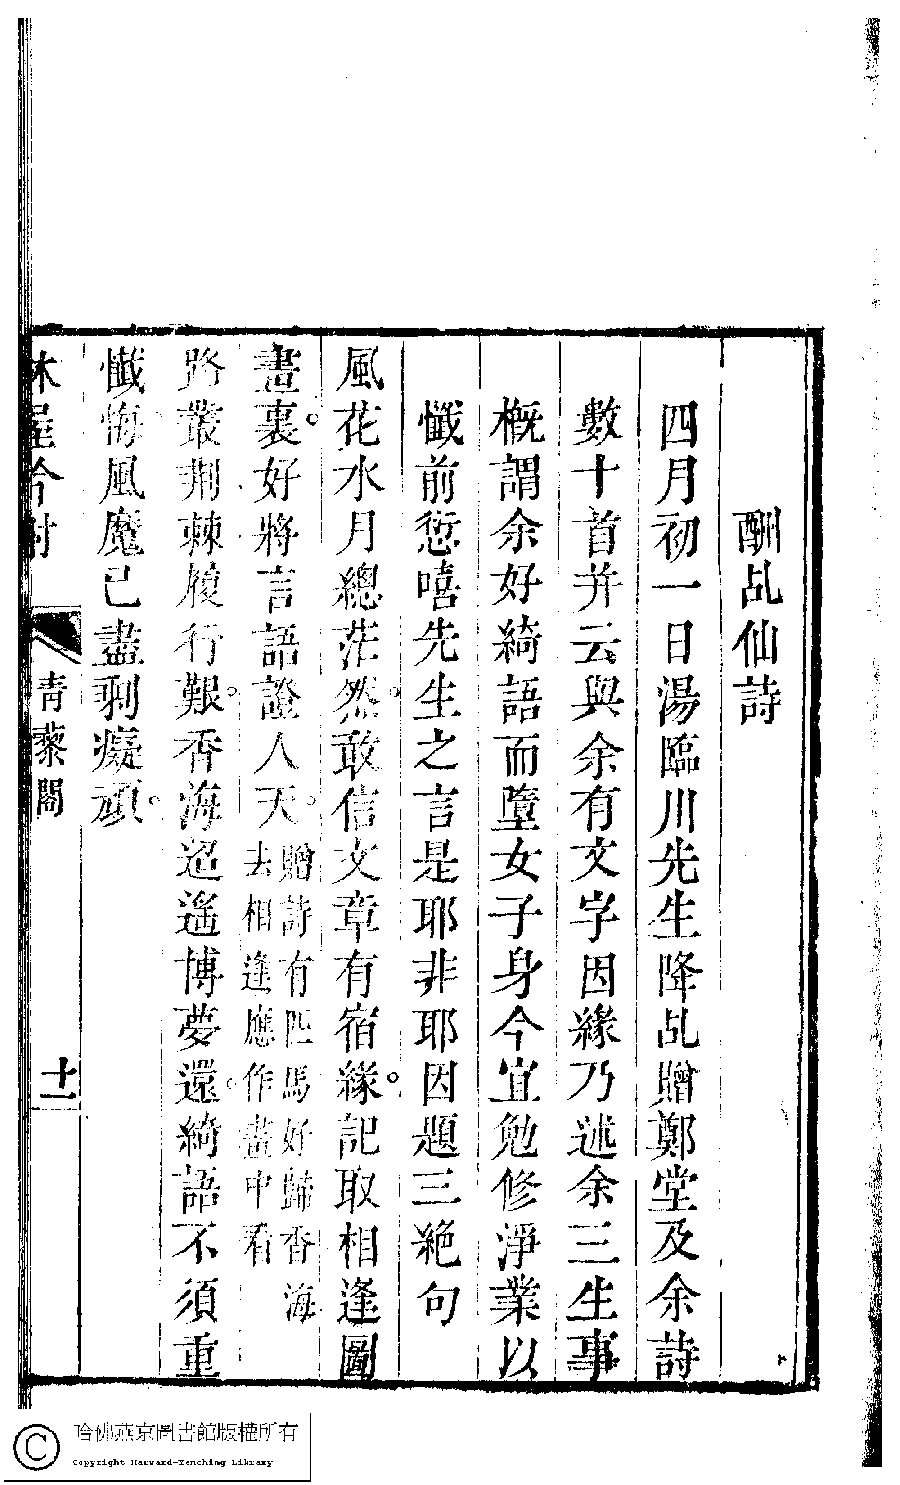 酬乩仙詩
四月初一日湯臨川先生降乩贈鄭堂及余詩
數十首并云與余有文字因緣乃述余三生事
概謂余好綺語而墮女子身今宜勉修淨業以
懺前愆嘻先生之言是耶非耶因題三絶句
風花水月總茫然敢信文章有宿緣記取相逢圖
畫裏好將言語證人天
贈詩有匹馬好歸香海
去相逢應作畫中看
路叢荆棘㥄行艱香海迢遙博夢還綺語不須重
懺悔風魔已盡剩癡頑
青藜閣
十一
哈佛燕京圖書館版權所有
Copyright Harvard-Yenching Library